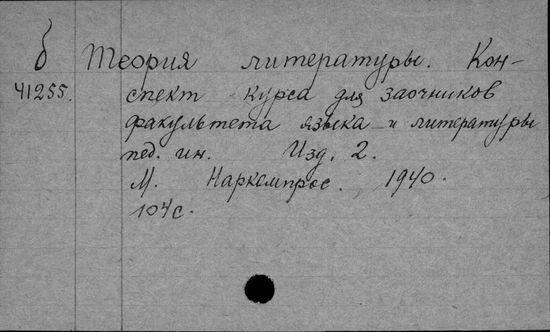 б Теория литературы. Кон-
41255. спект курса для заочников
факультета языка и литературы
пед. ин. Изд. 2.
М. Наркомпрос. 1940.
104с.